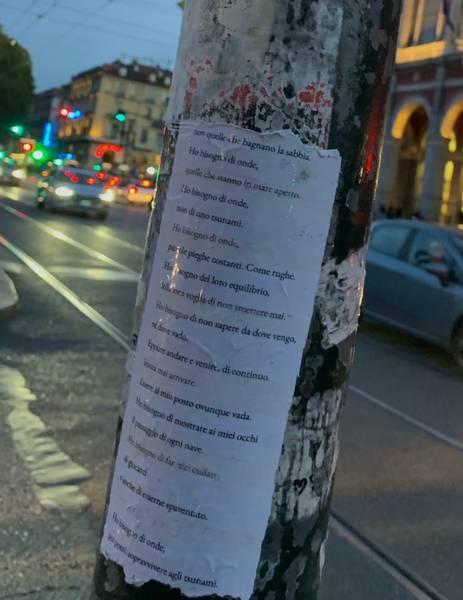 non quelle che bagnano la sabbia.
Ho bisogno di onde,
quelle che stanno in mare aperto.
Ho bisogno di onde,
non di uno tsunami.
Ho bisogno di onde,
per le pieghe costanti. Come rughe.
Ho bisogno del loro equilibrio,
della loro voglia di non smettere mai.
Ho bisogno di non sapere da dove vengo,
né dove vado.
Eppure andare e venire, di continuo.
Senza mai arrivare.
Essere al mio posto ovunque vada.
Ho bisogno di mostrare ai miei occhi
il passaggio di ogni nave.
Ho bisogno di far
di giocarci
e anche di esserne spaventato.
Ho bisogno di onde,
per poter sopravvivere agli tsunami.